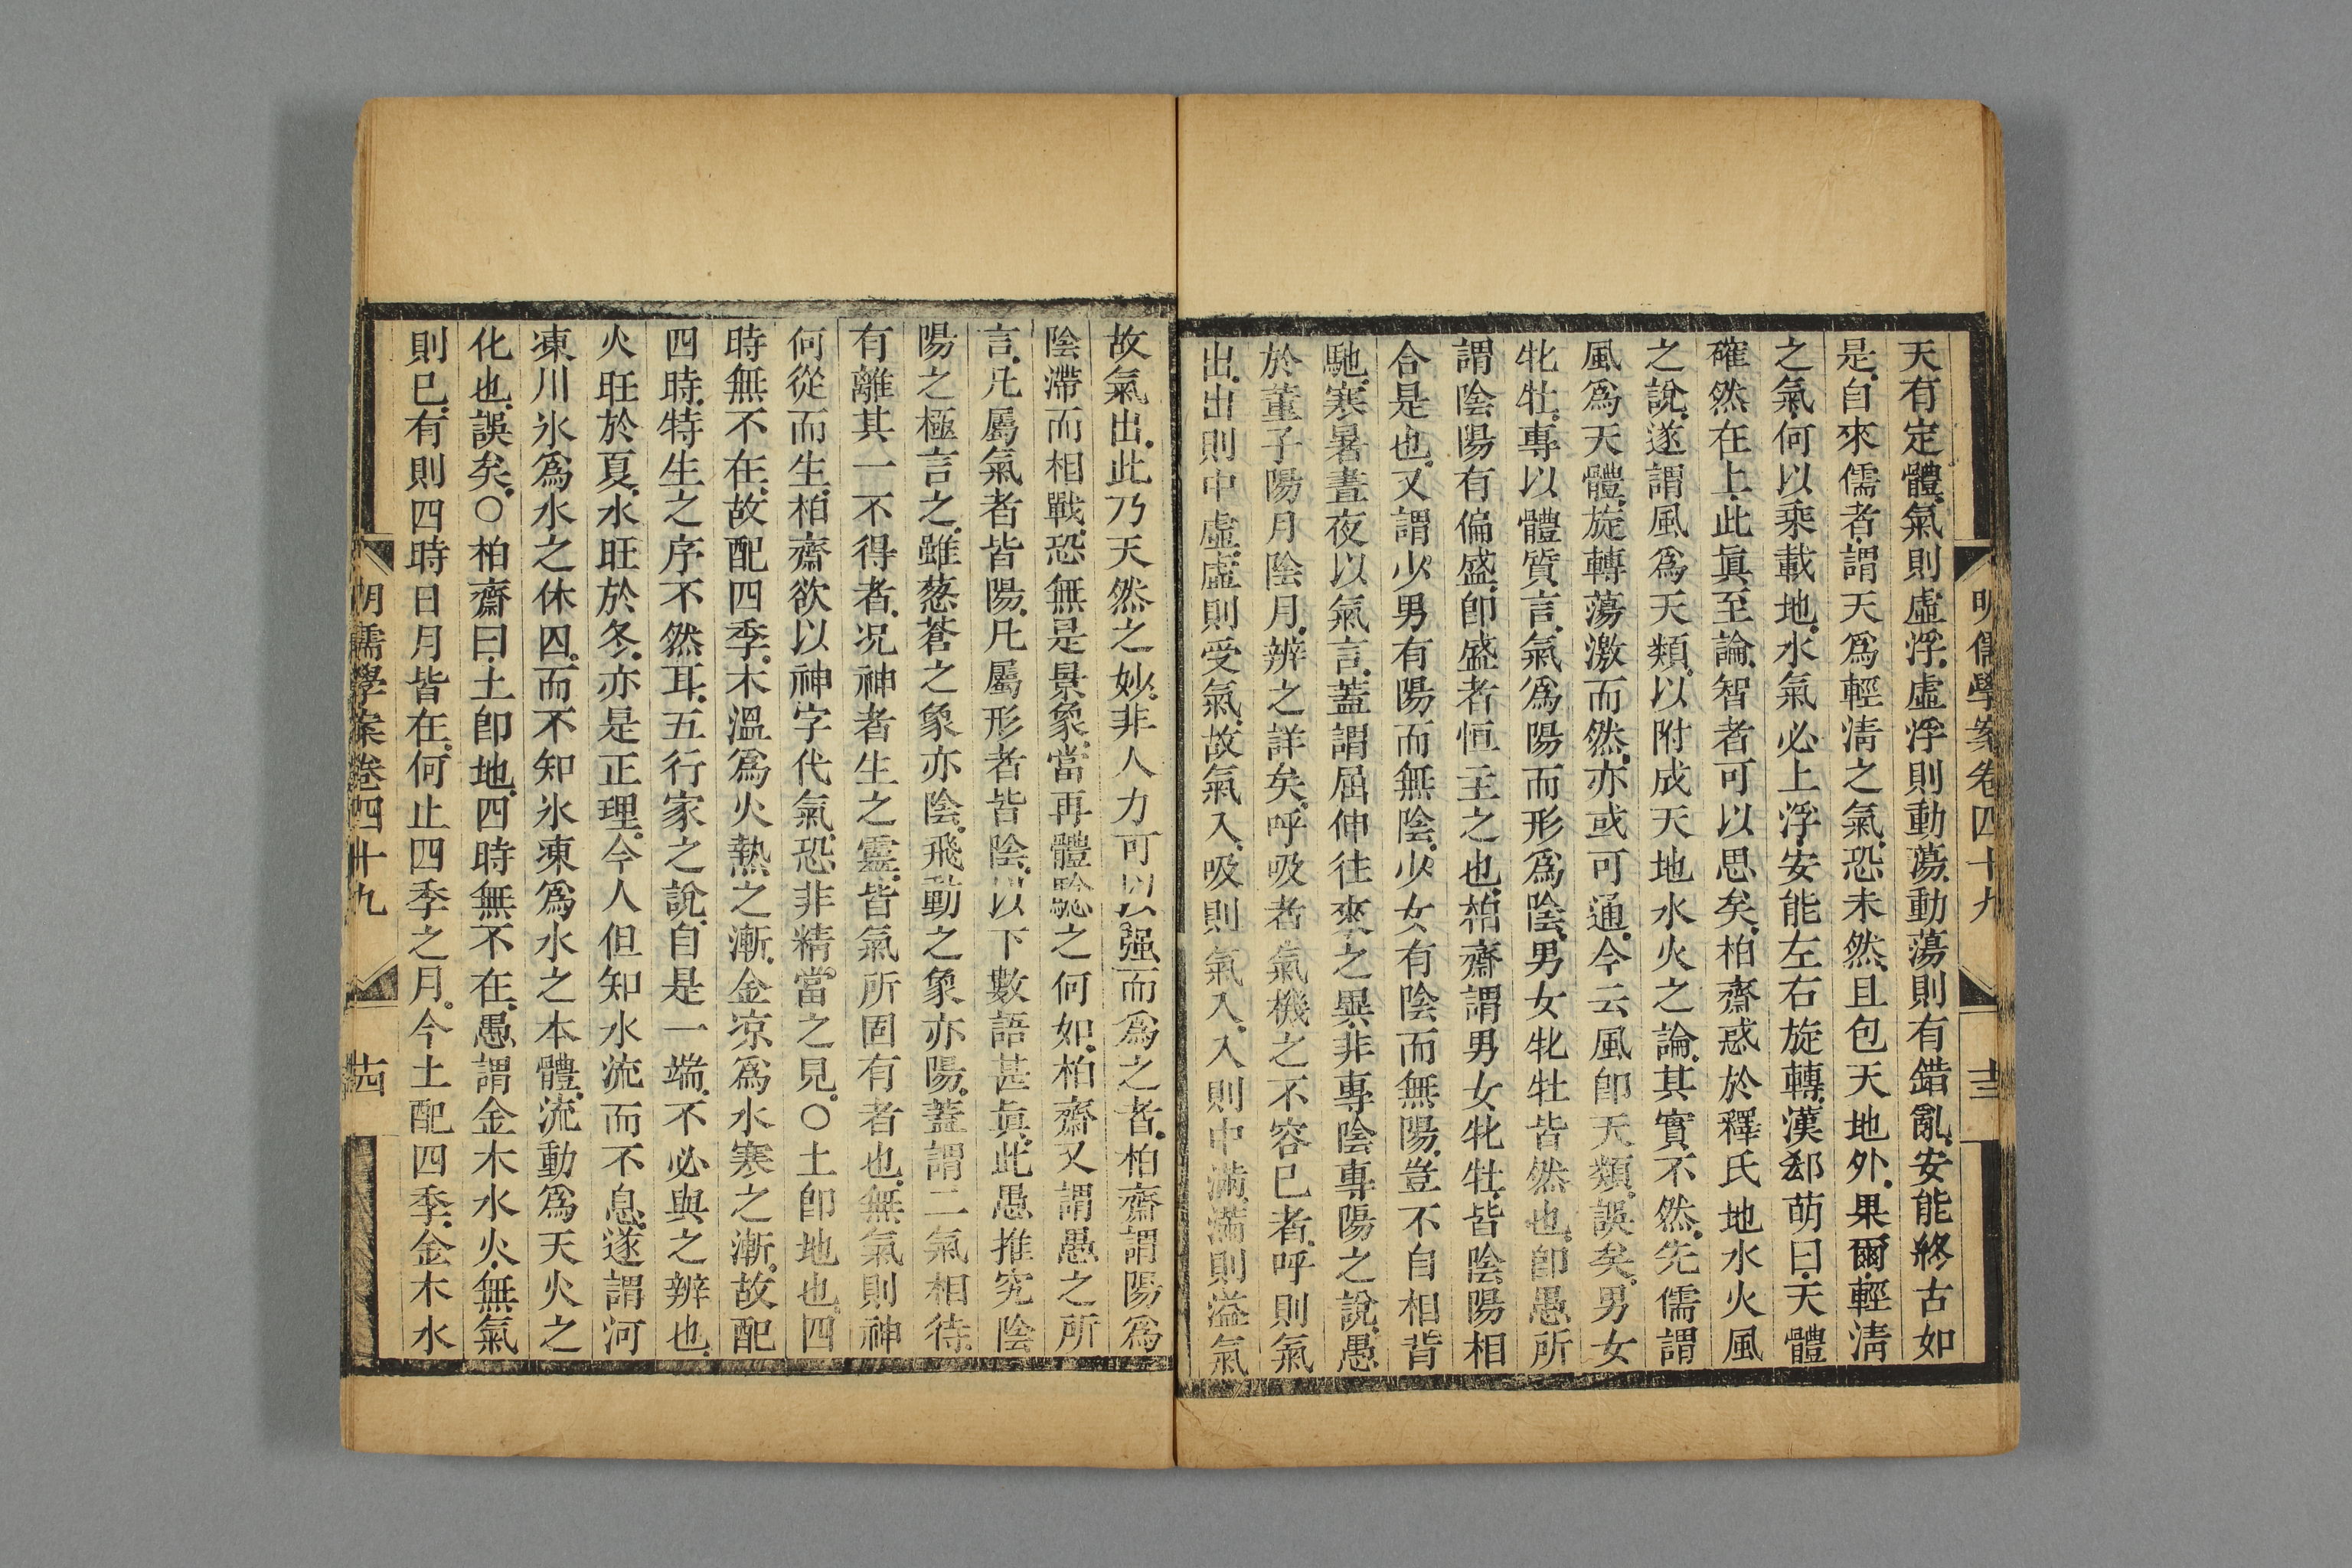 明儒學案卷四十九
十三
天有定體氣則虛浮虛浮則動蕩動蕩則有錯亂安能終古如
是自來儒者謂天爲輕淸之氣恐未然且包天地外果爾輕淸
之氣何以乘載地水氣必上浮安能左右旋轉漢郄萌曰天體
確然在上此眞至論智者可以思矣柏齋惑於釋氏地水火風
之說遂謂風爲天類以附成天地水火之論其實不然先儒謂
風爲天體旋轉蕩激而然亦或可通今云風卽天類誤矣男女
牝牡專以體質言氣爲陽而形爲陰男女牝牡皆然也卽愚所
謂陰陽有偏盛卽盛者恒主之也柏齋謂男女牝牡皆陰陽相
合是也又謂少男有陽而無陰少女有陰而無陽豈不自相背
馳寒暑晝夜以氣言蓋謂屈伸往來之異非專陰專陽之說愚
於董子陽月陰月辨之詳矣呼吸者氣機之不容已者呼則氣
出出則中虛虛則受氣故氣入吸則氣入入則中滿滿則溢氣
故氣出此乃天然之妙非人力可以强而爲之者柏齋謂陽爲
陰滯而相戰恐無是景象當再體驗之何如柏齋又謂愚之所
言凡屬氣者皆陽凡屬形者皆陰以下數語甚眞此愚推究陰
陽之極言之雖葱蒼之象亦陰飛動之象亦陽蓋謂二氣相待
有離其一不得者况神者生之靈皆氣所固有者也無氣則神
何從而生柏齋欲以神字代氣恐非精當之見○土卽地也四
時無不在故配四季木溫爲火熱之漸金凉爲水寒之漸故配
四時特生之序不然耳五行家之說自是一端不必與之辨也
火旺於夏水旺於冬亦是正理今人但知水流而不息遂謂河
凍川氷爲水之休囚而不知氷凍爲水之本體流動爲天火之
化也誤矣○柏齋曰土卽地四時無不在愚謂金木水火無氣
則已有則四時日月皆在何止四季之月今土配四季金木水
明儒學案卷四十九
十四